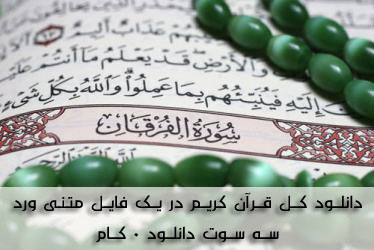 عَذَابٌ أَلِيمٌ
وَٱلْأَرْضِ قَدْ يَعْلَمُ مَآ أَنتُمْ عَلَيْهِ
إِلَيْهِ فَيُنَبِّئُهُم بِمَا عَمِلُوا۟ وَٱللَّهُ بِكُلِّ شَىْءٍ
سُورَةُ الْفُرْقَانِ
دانلود کل قرآن کریم در یک فایل متنی ورد
سه سوت دانلود ۰ کام